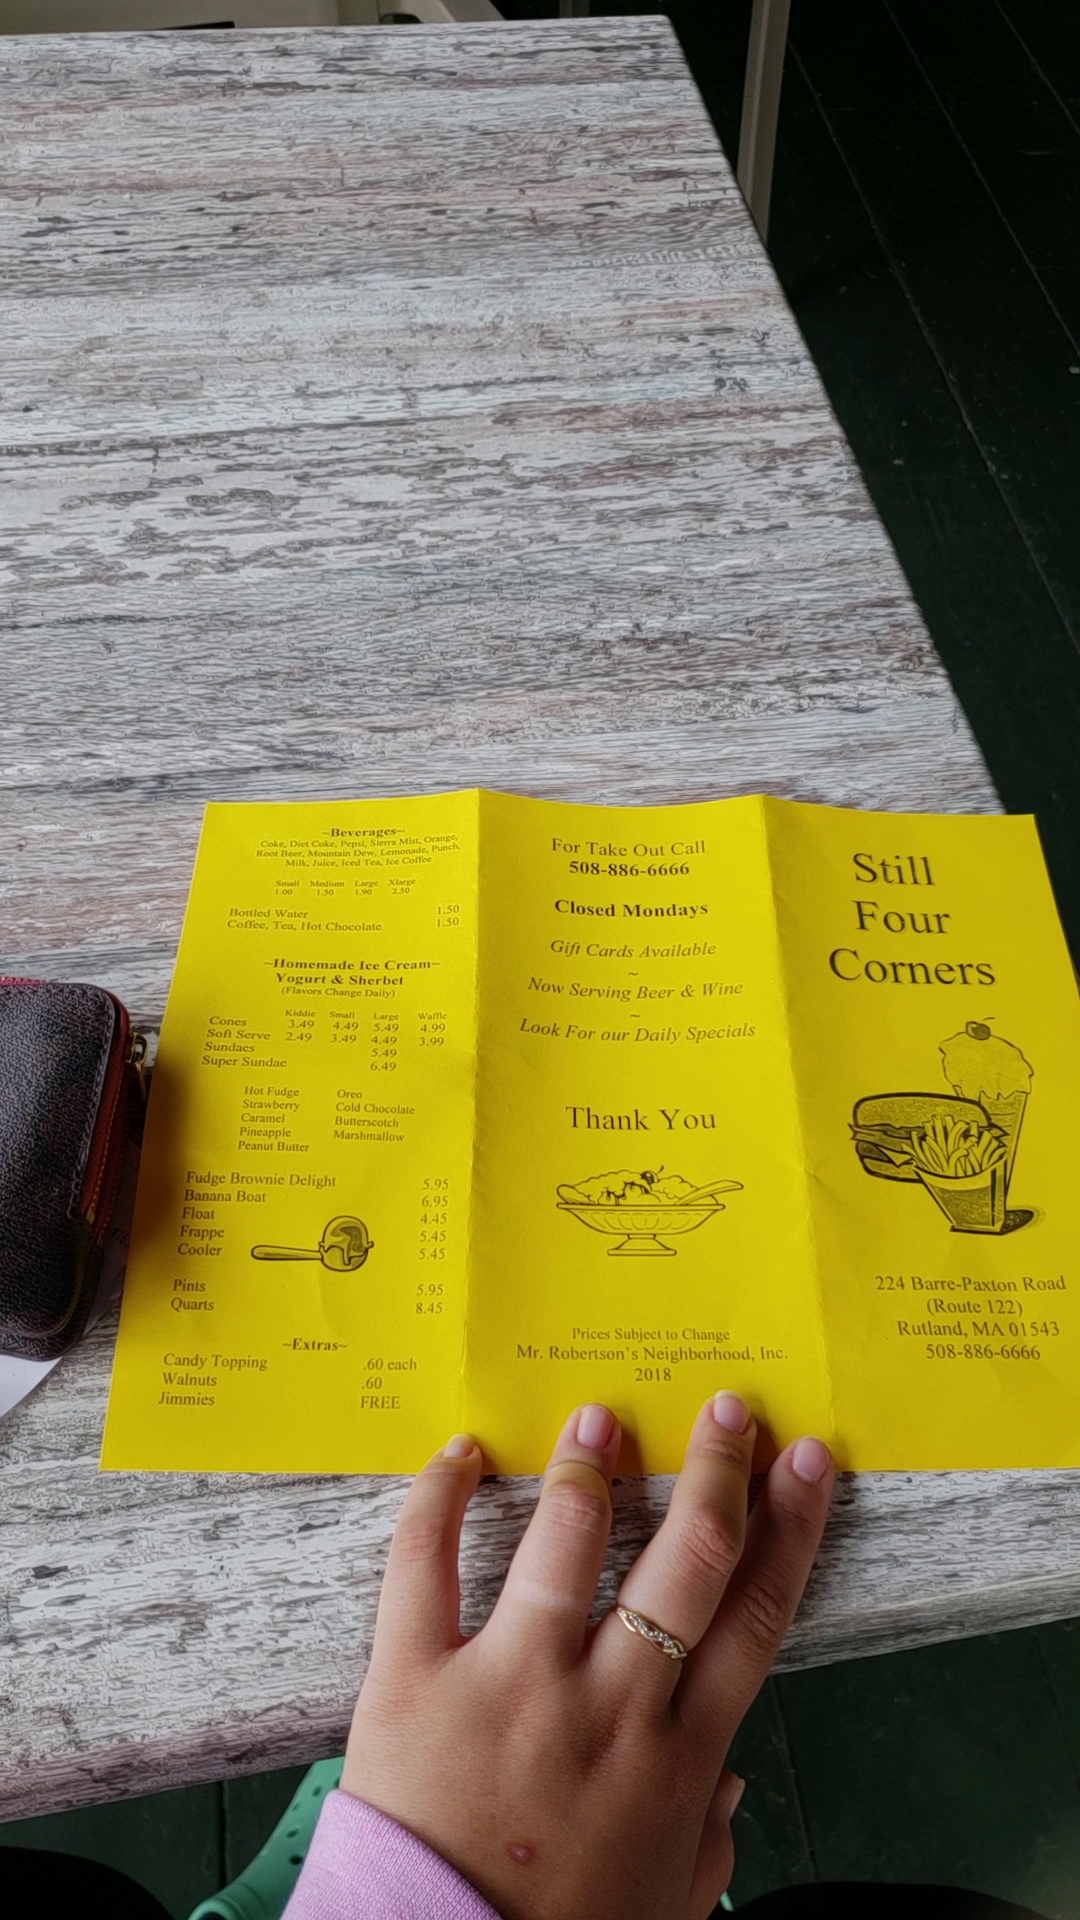 ~Beverages~
Coke, Diet Coke, Pepsi, Sierra Mist, Orange,
Root Beer, Mountain Dew, Lemonade, Punch,
Milk, Juice, Iced Tea, Ice Coffee
Small Medium Large Xlarge
1.00 1.50 1.90 2.50
Bottled Water 1.50
Coffee, Tea, Hot Chocolate 1.50
~Homemade Ice Cream~
Yogurt & Sherbet
(Flavors Change Daily)
Kiddie Small Large Waffle
Cones 3.49 4.49 5.49 4.99
Soft Serve 2.49 3.49 4.49 3.99
Sundaes 5.49
Super Sundae 6.49
Hot Fudge Oreo
Strawberry Cold Chocolate
Caramel Butterscotch
Pineapple Marshmallow
Peanut Butter
Fudge Brownie Delight 5.95
Banana Boat 6.95
Float 4.45
Frappe 5.45
Cooler 5.45
Pints 5.95
Quarts 8.45
~Extras~
Candy Topping .60 each
Walnuts .60
Jimmies FREE
For Take Out Call
508-886-6666
Closed Mondays
Gift Cards Available
~
Now Serving Beer & Wine
~
Look For our Daily Specials
Thank You
Prices Subject to Change
Mr. Robertson's Neighborhood, Inc.
2018
Still
Four
Corners
224 Barre-Paxton Road
(Route 122)
Rutland, MA 01543
508-886-6666